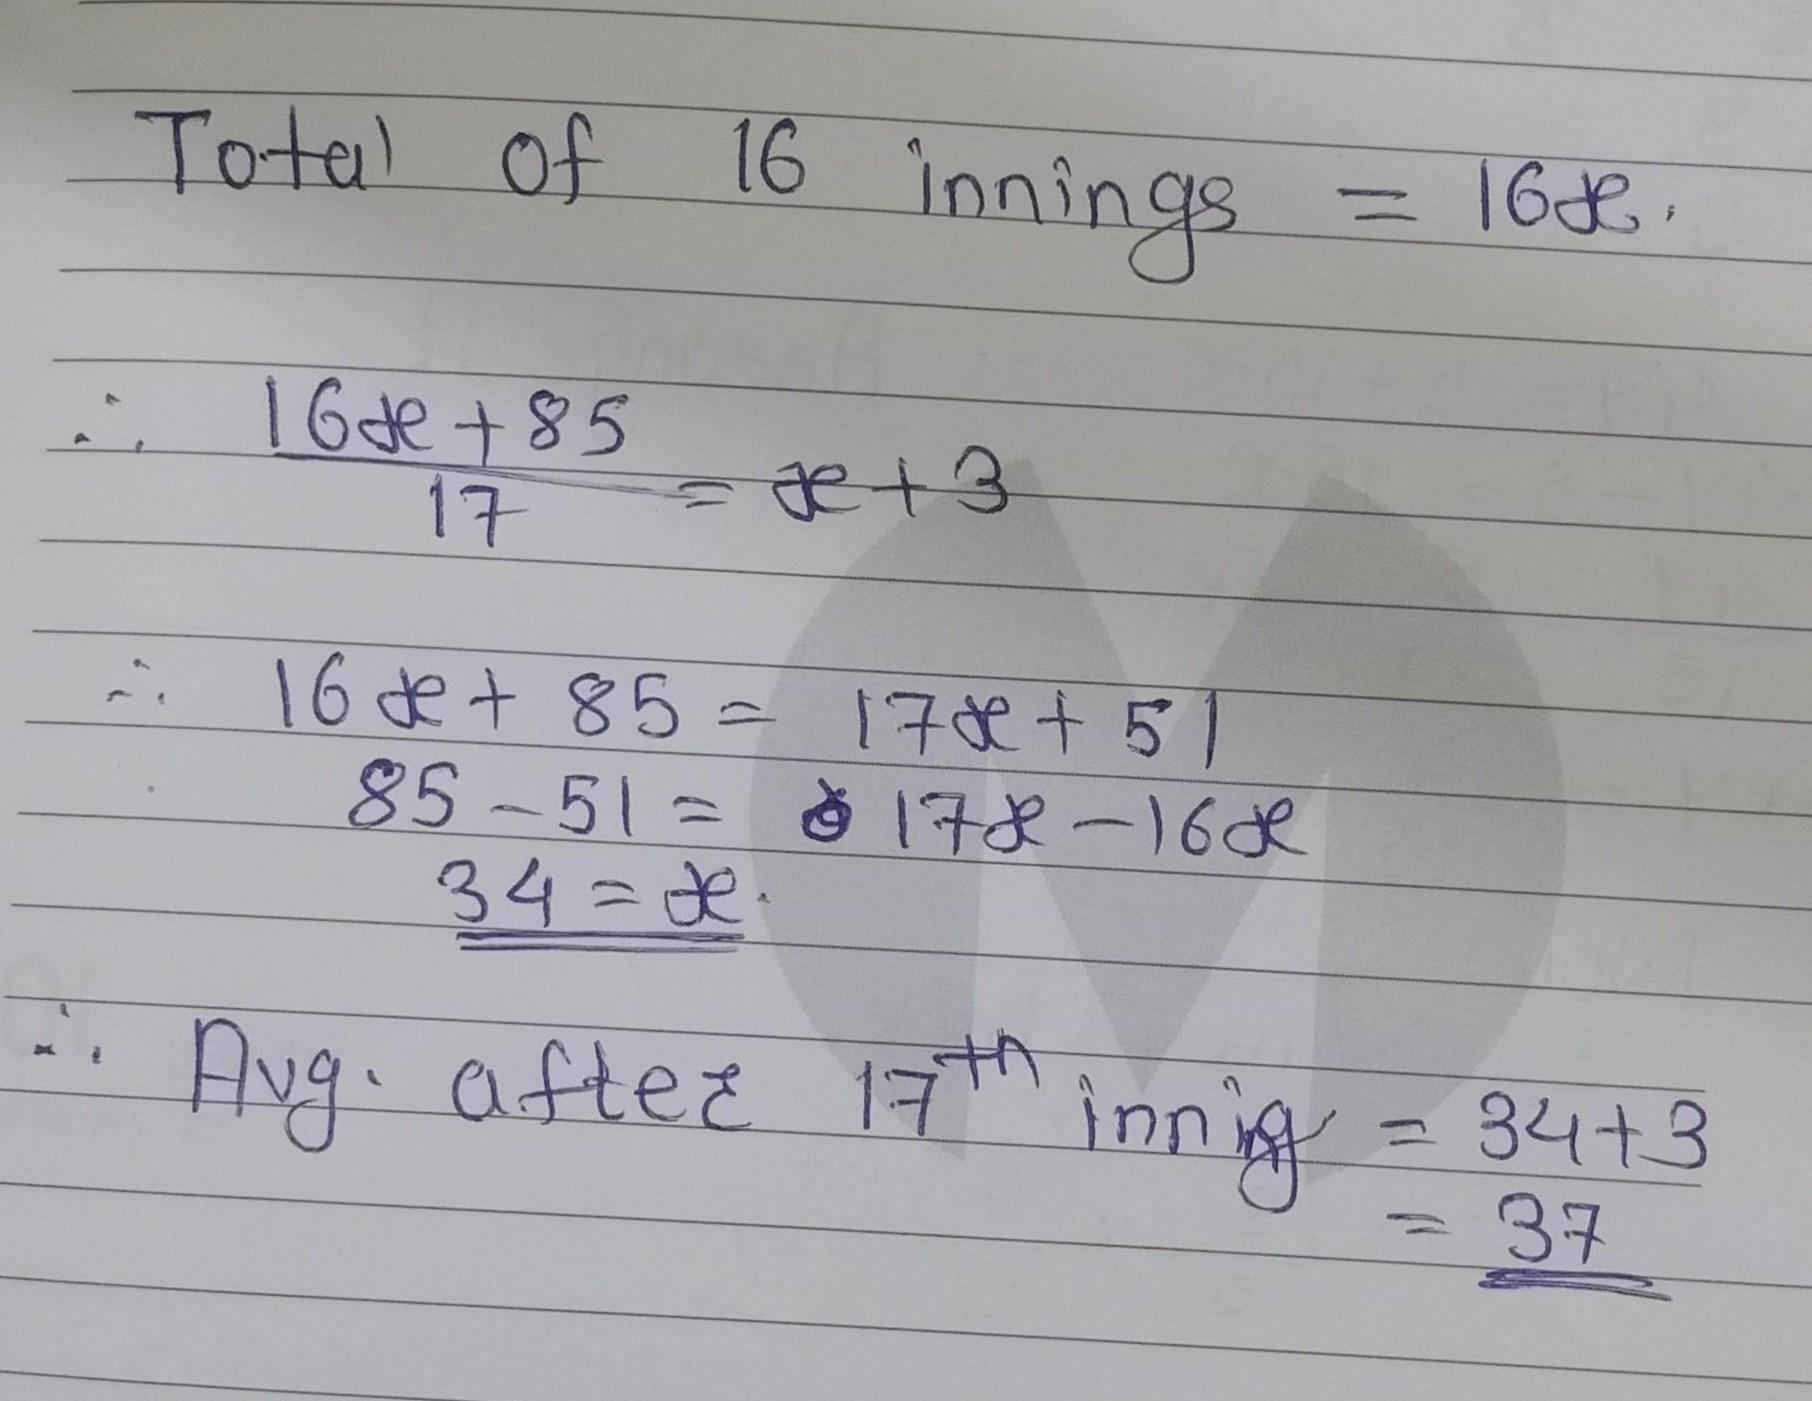 Total of 16 innings = 16x.
∴ 16x + 85 / 17 = x + 3
∴ 16x + 85 = 17x + 51
85 - 51 = 17x - 16x
34 = x.
∴ Avg. after 17th innig = 34 + 3
= 37